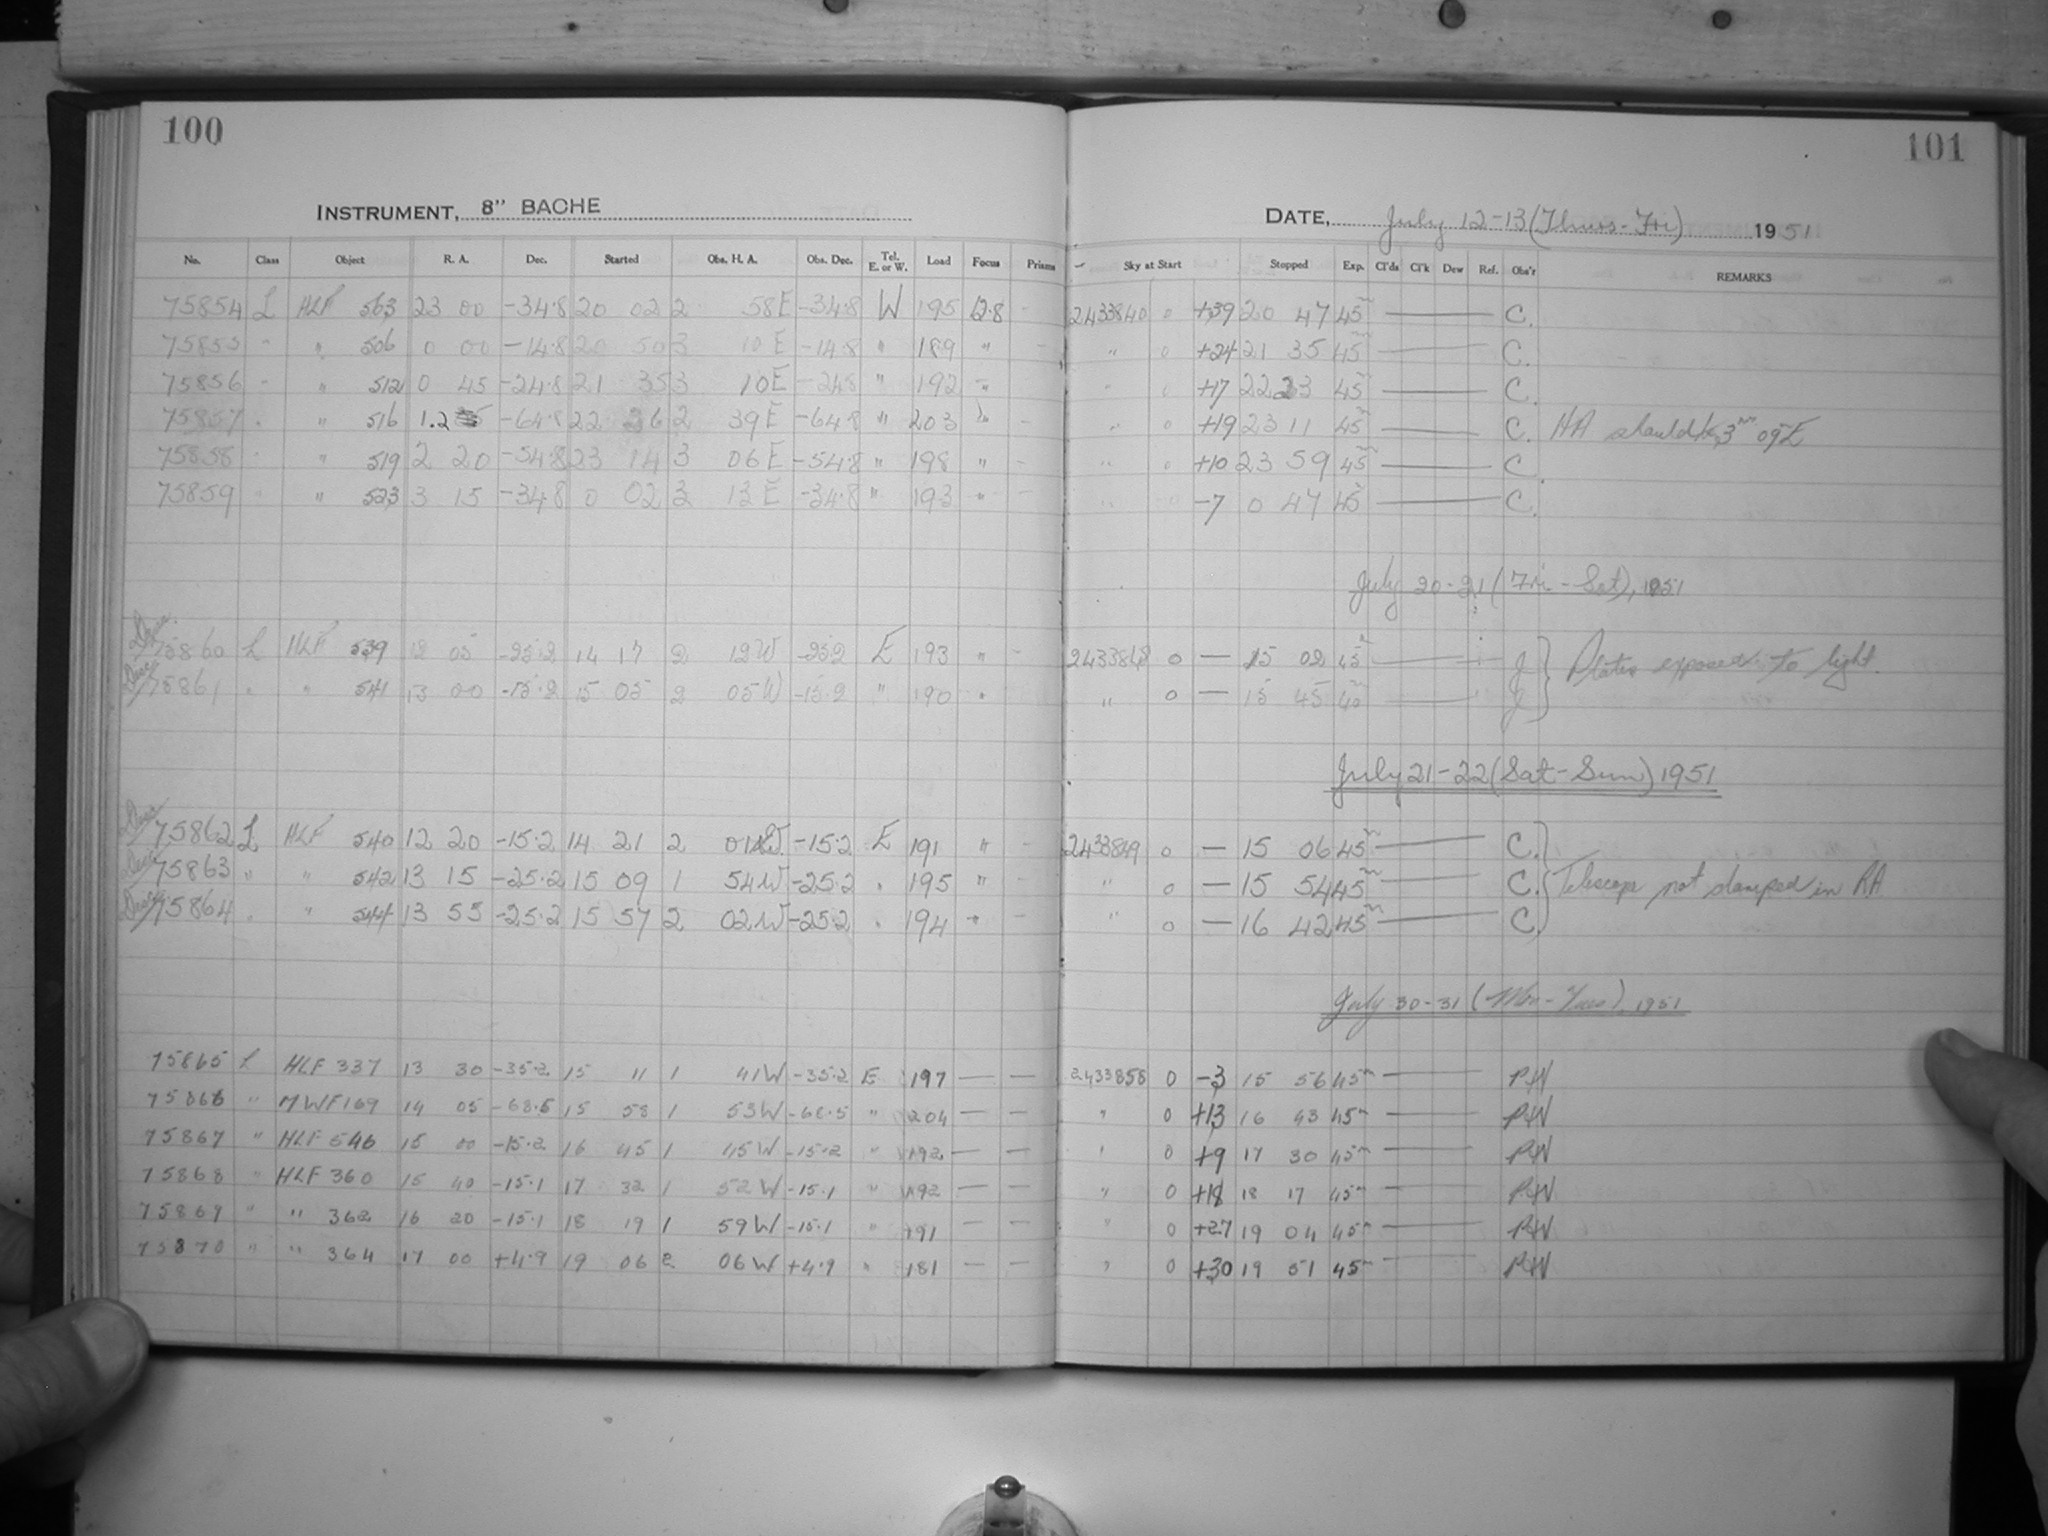 100
INSTRUMENT, 8" BACHE
No. Class Object R. A. Dec. Started Obs. H. A. Obs. Dec. Tel. E. or W. Load Focus Prisms
75854 L HLF 503 23 00 -34.8 20 02 2 58E -34.8 W 195 12.8 -
75855 " " 506 0 00 -14.8 20 50 3 10 E -14.8 " 189 " -
75856 - " 512 0 45 -24.8 21 35 3 10E -24.8 " 192 "
75857 . " 516 1.2 -64.8 22 26 2 39E -64.8 " 203 "
75858 - " 519 2 20 -54.8 23 14 3 06 E -54.8 " 198 " -
75859 " 523 3 15 -34.8 0 02 3 13 E -34.8 " 193 " -
75860 L HLF 539 12 05 -25.2 14 17 2 12W -25.2 E 193 " -
75861 " " 541 13 00 -15.2 15 05 2 05W -15.2 " 190 "
75862 L HLF 540 12 20 -15.2 14 21 2 01W -15.2 E 191 "
75863 " " 542 13 15 -25.2 15 09 1 54W -25.2 . 195 "
75864 . " 544 13 55 -25.2 15 57 2 02W -25.2 . 194 " -
75865 L HLF 337 13 30 -35.2 15 11 1 41W -35.2 E 197 — —
75866 " MWF169 14 05 -68.5 15 58 1 53W -68.5 " 204 — —
75867 " HLF 546 15 00 -15.2 16 45 1 45W -15.2 " 192 — —
75868 " HLF 360 15 40 -15.1 17 32 1 52W -15.1 " 192 — —
75869 " " 362 16 20 -15.1 18 19 1 59W -15.1 " 191 — —
75870 " " 364 17 00 +4.9 19 06 2 06W +4.9 " 181 — —
101
DATE, July 12-13 (Thurs-Fri) 1951
Sky at Start Stopped Exp. Cl'ds Cl'k Dew Ref. Obs'r REMARKS
2433840 0 +39 20 47 45m — C.
" 0 +24 21 35 45m — C.
" 0 +17 22 23 45m — C.
" 0 +19 23 11 45m — C. HA should be 3 09E
" 0 +10 23 59 45m — C.
" -7 0 47 45 — C.
July 20-21 (Fri - Sat), 1951
2433848 0 — 15 02 45 — J Plates exposed to light.
" 0 — 15 45 40 — J
July 21-22 (Sat-Sun) 1951
2433849 0 — 15 06 45m — C.
" 0 — 15 54 45m — C. Telescope not clamped in RA
" 0 — 16 42 45m — C.
July 30-31 (Mon-Tues), 1951
2433858 0 -3 15 56 45m — PW
" 0 +13 16 43 45m — PW
" 0 +9 17 30 45m — PW
" 0 +18 18 17 45m — PW
" 0 +27 19 04 45m — PW
" 0 +30 19 51 45m — PW